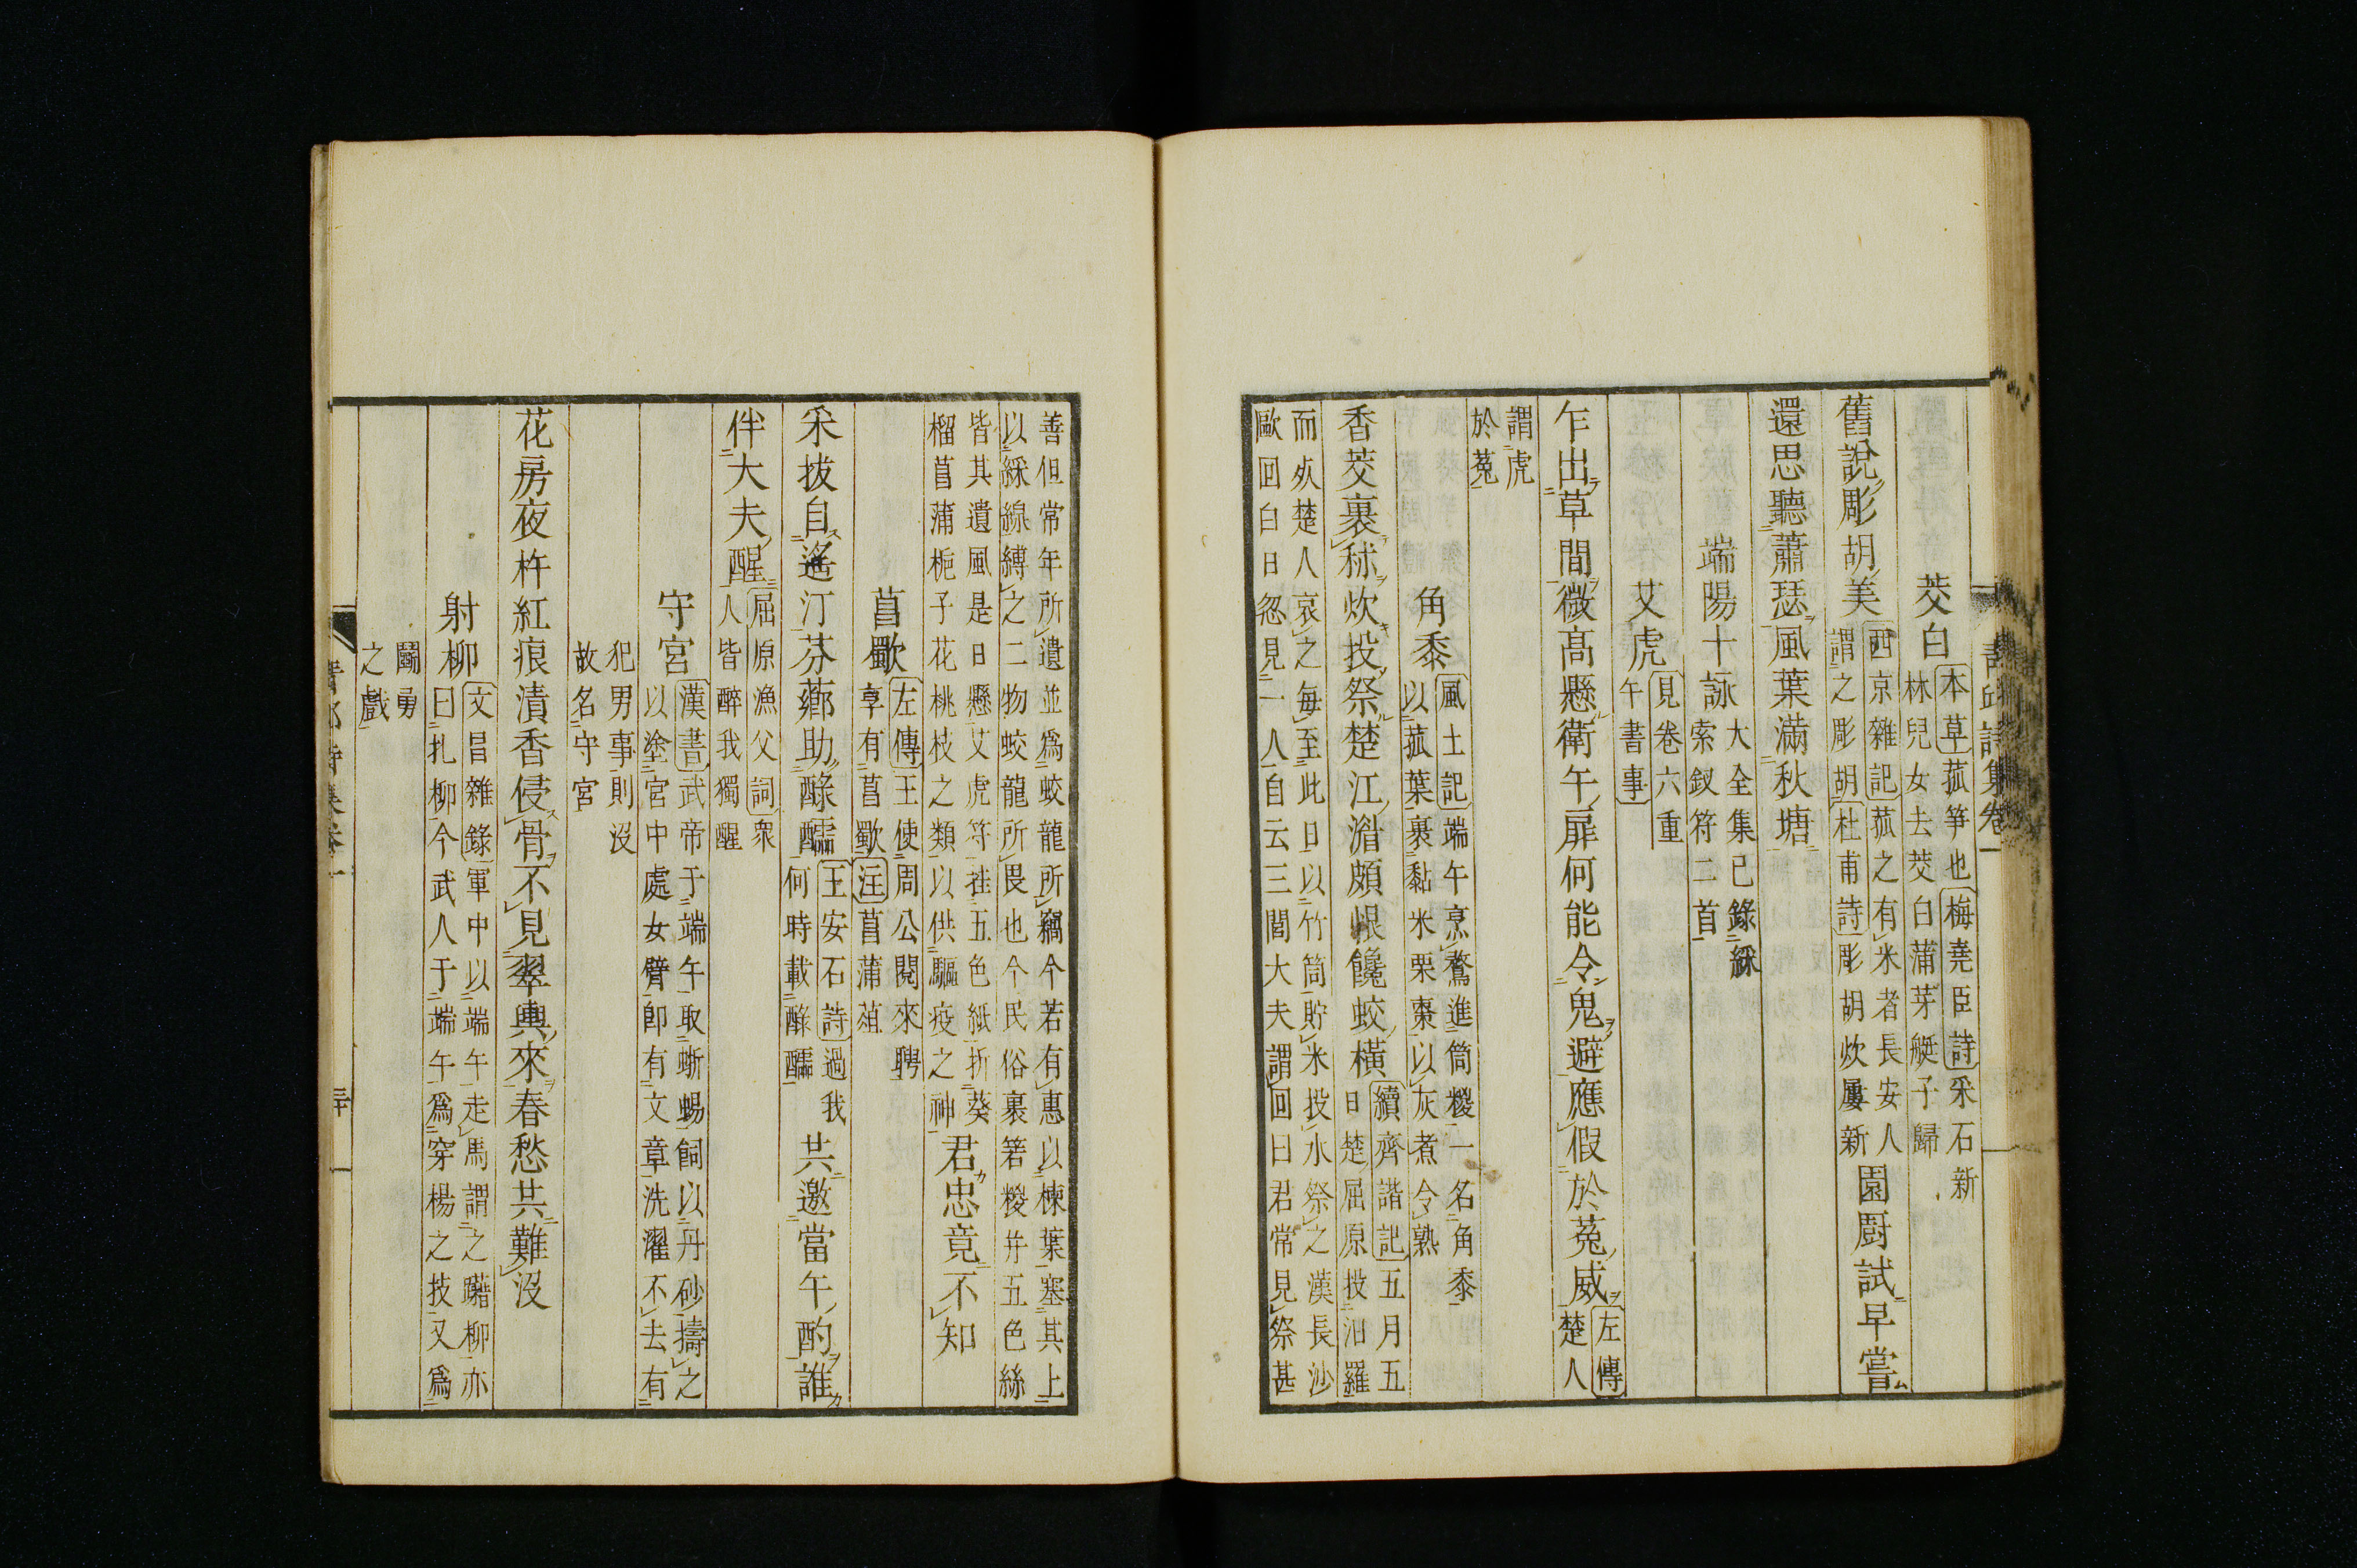 茭白
本草菰笋也梅堯臣詩采石新
林兒女去茭白蒲芽艇子歸
舊說彫胡美
西京雜記菰之有米者長安人
謂之彫胡杜甫詩彫胡炊屢新
園厨試早嘗
還思聽蕭瑟風葉滿秋塘
端陽十詠
大全集已錄綵
索釵符二首
艾虎
見卷六重
午書事
乍出草間微高懸衛午扉何能令鬼避應假於菟威
左傳
楚人
謂虎
於菟
角黍
風土記端午烹鶩進筒糉一名角黍
以菰葉裹黏米栗棗以灰煮令熟
香茭裹秫炊投祭楚江湄頗恨饞蛟橫
續齊諧記五月五
日楚屈原投汨羅
而死楚人哀之每至此日以竹筒貯米投水祭之漢長沙
歐回白日忽見一人自云三閭大夫謂回曰君常見祭甚
善但常年所遺並爲蛟龍所竊今若有惠以楝葉塞其上
以綵線縛之二物蛟龍所畏也今民俗裹箬糉并五色絲
皆其遺風是日懸艾虎符挂五色紙折葵
榴菖蒲梔子花桃枝之類以供驅疫之神
君忠竟不知
菖歜
左傳王使周公閱來聘
享有菖歜注菖蒲葅
采拔自遙汀芬薌助醁醹
王安石詩過我
何時載醁醹
共邀當午酌誰
伴大夫醒
屈原漁父詞衆
人皆醉我獨醒
守宮
漢書武帝于端午取蜥蜴飼以丹砂擣之
以塗宮中處女臂卽有文章洗濯不去有
犯男事則沒
故名守宮
花房夜杵紅痕漬香侵骨不見翠輿來春愁共難沒
射柳
文昌雜錄軍中以端午走馬謂之躤柳亦
曰扎柳今武人于端午爲穿楊之技又爲
鬭勇
之戲